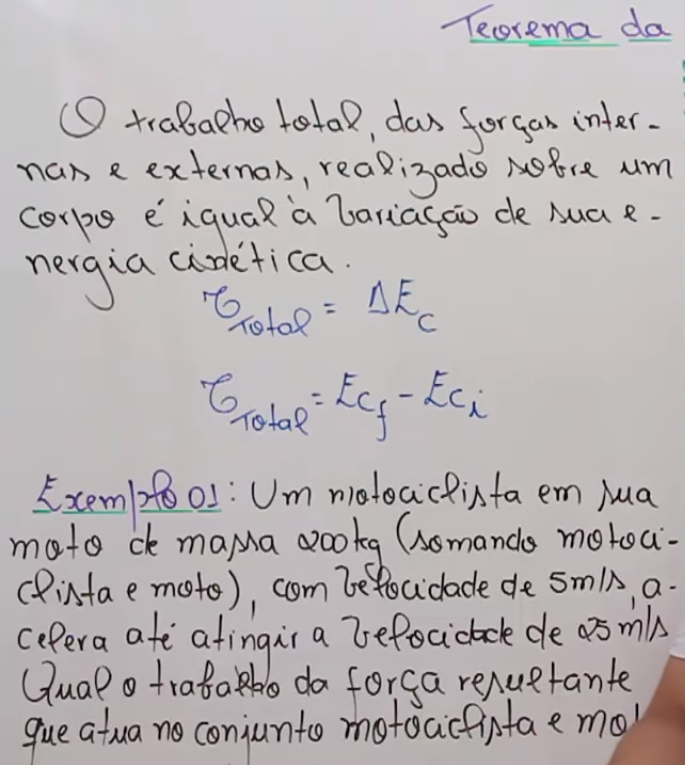 Teorema da
O trabalho total, das forças inter-
nas e externas, realizado sobre um
corpo é igual à variação de sua e-
nergia cinética.
τTotal = ΔEc
τTotal = Ecf - Eci
Exemplo 01: Um motociclista em sua
moto de massa 200kg (somando motoci-
clista e moto), com velocidade de 5m/s, a-
celera até atingir a velocidade de 25m/s
Qual o trabalho da força resultante
que atua no conjunto motociclista e